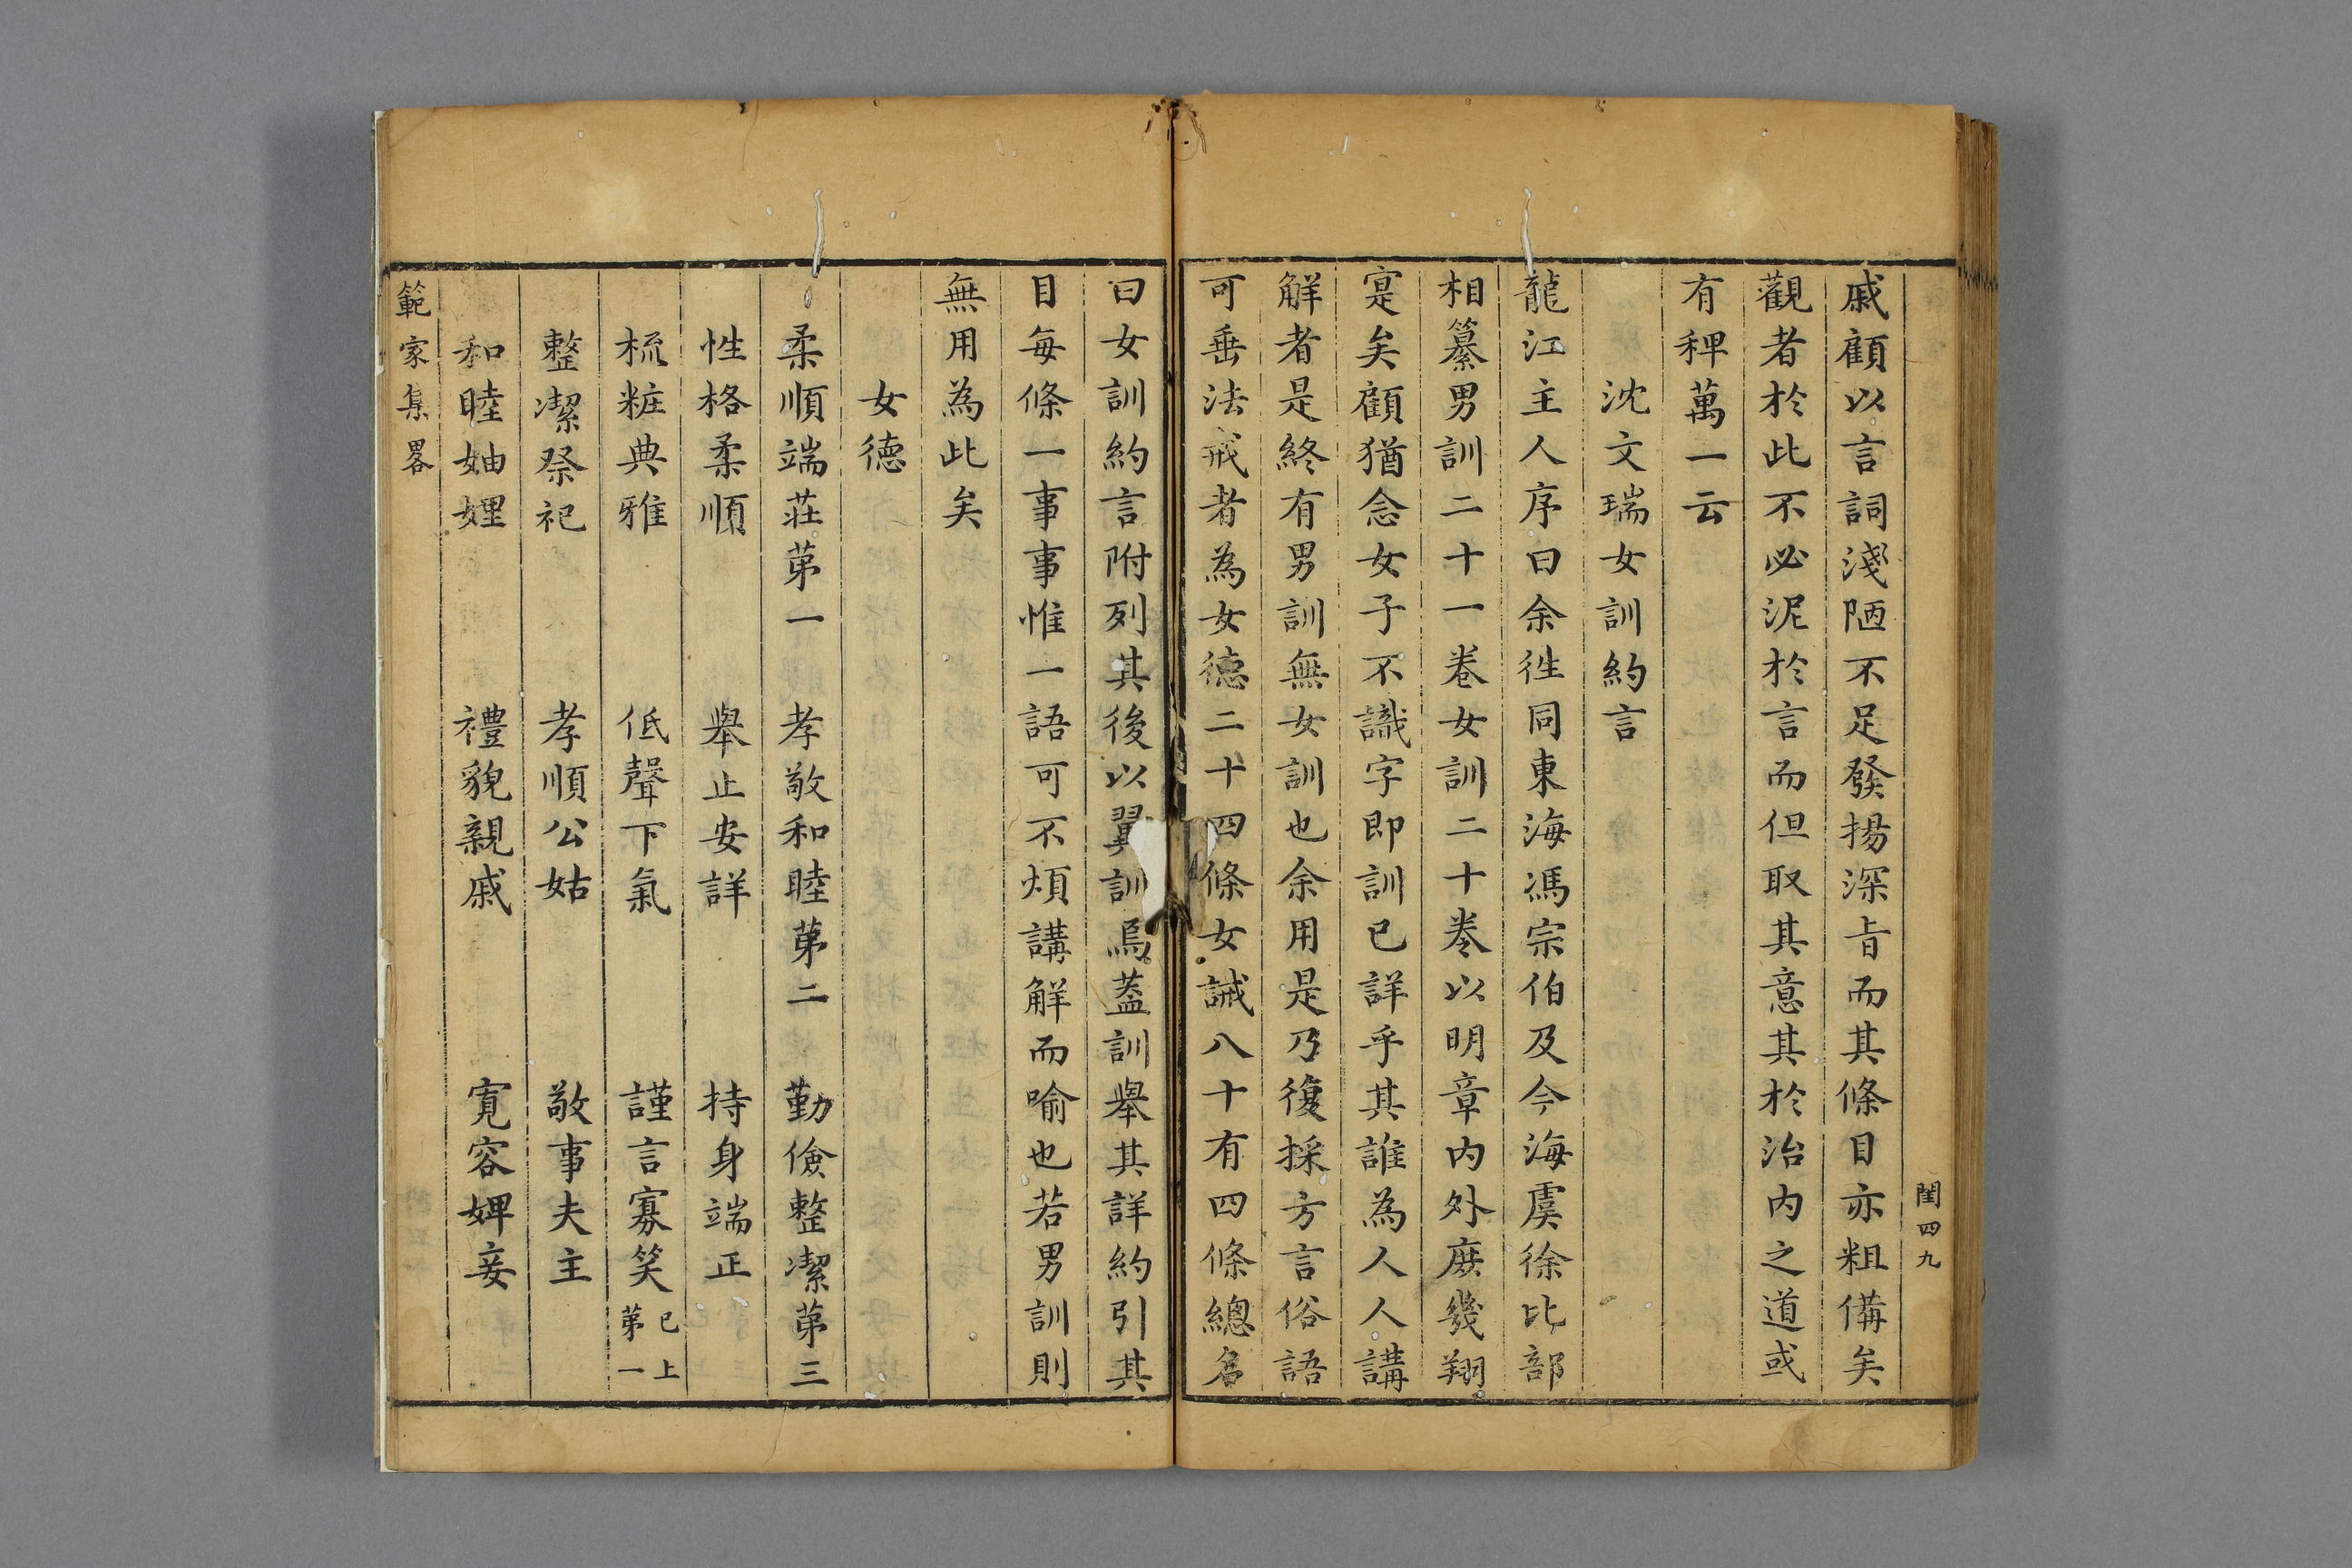 閨四九
戚顧以言詞淺陋不足發揚深旨而其條目亦粗備矣
觀者於此不必泥於言而但取其意其於治内之道或
有稗萬一云
沈文瑞女訓約言
龍江主人序曰余徃同東海馮宗伯及今海虞徐比部
相纂男訓二十一卷女訓二十卷以明章内外庶幾翔
寔矣顧猶念女子不識字即訓已詳乎其誰為人人講
解者是終有男訓無女訓也余用是乃復採方言俗語
可垂法戒者為女德二十四條女誡八十有四條總名
曰女訓約言附列其後以翼訓焉蓋訓舉其詳約引其
目每條一事事惟一語可不煩講解而喻也若男訓則
無用為此矣
女德
柔順端莊苐一　孝敬和睦苐二　勤儉整潔苐三
性格柔順　舉止安詳　持身端正
梳粧典雅　低聲下氣　謹言寡笑　已上苐一
整潔祭祀　孝順公姑　敬事夫主
和睦妯娌　禮貌親戚　寛容婢妾
範家集畧